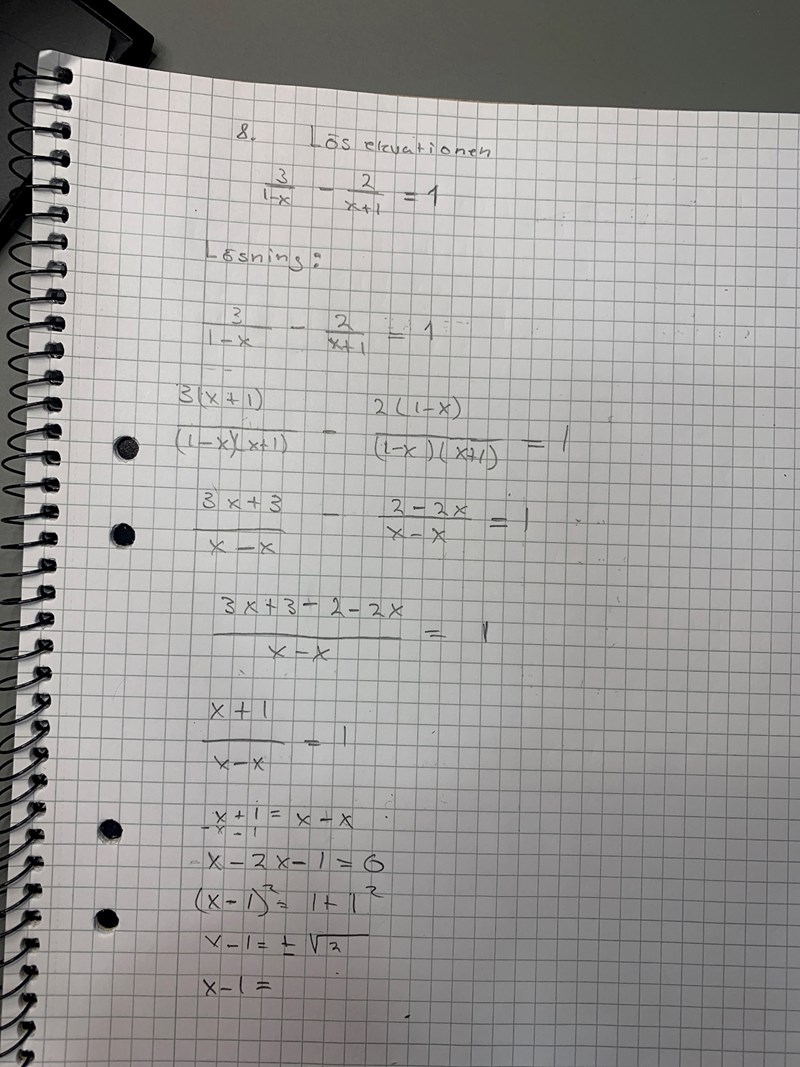 8. Lös ekvationen
3/(1-x) - 2/(x+1) = 1
Lösning:
3/(1-x) - 2/(x+1) = 1
3(x+1)/((1-x)(x+1)) - 2(1-x)/((1-x)(x+1)) = 1
(3x+3)/(x-x) - (2-2x)/(x-x) = 1
(3x+3-2-2x)/(x-x) = 1
(x+1)/(x-x) = 1
x+1 = x-x
-x -1
x-2x-1=0
(x-1)² = 1+1²
x-1 = ± √2
x-1 =